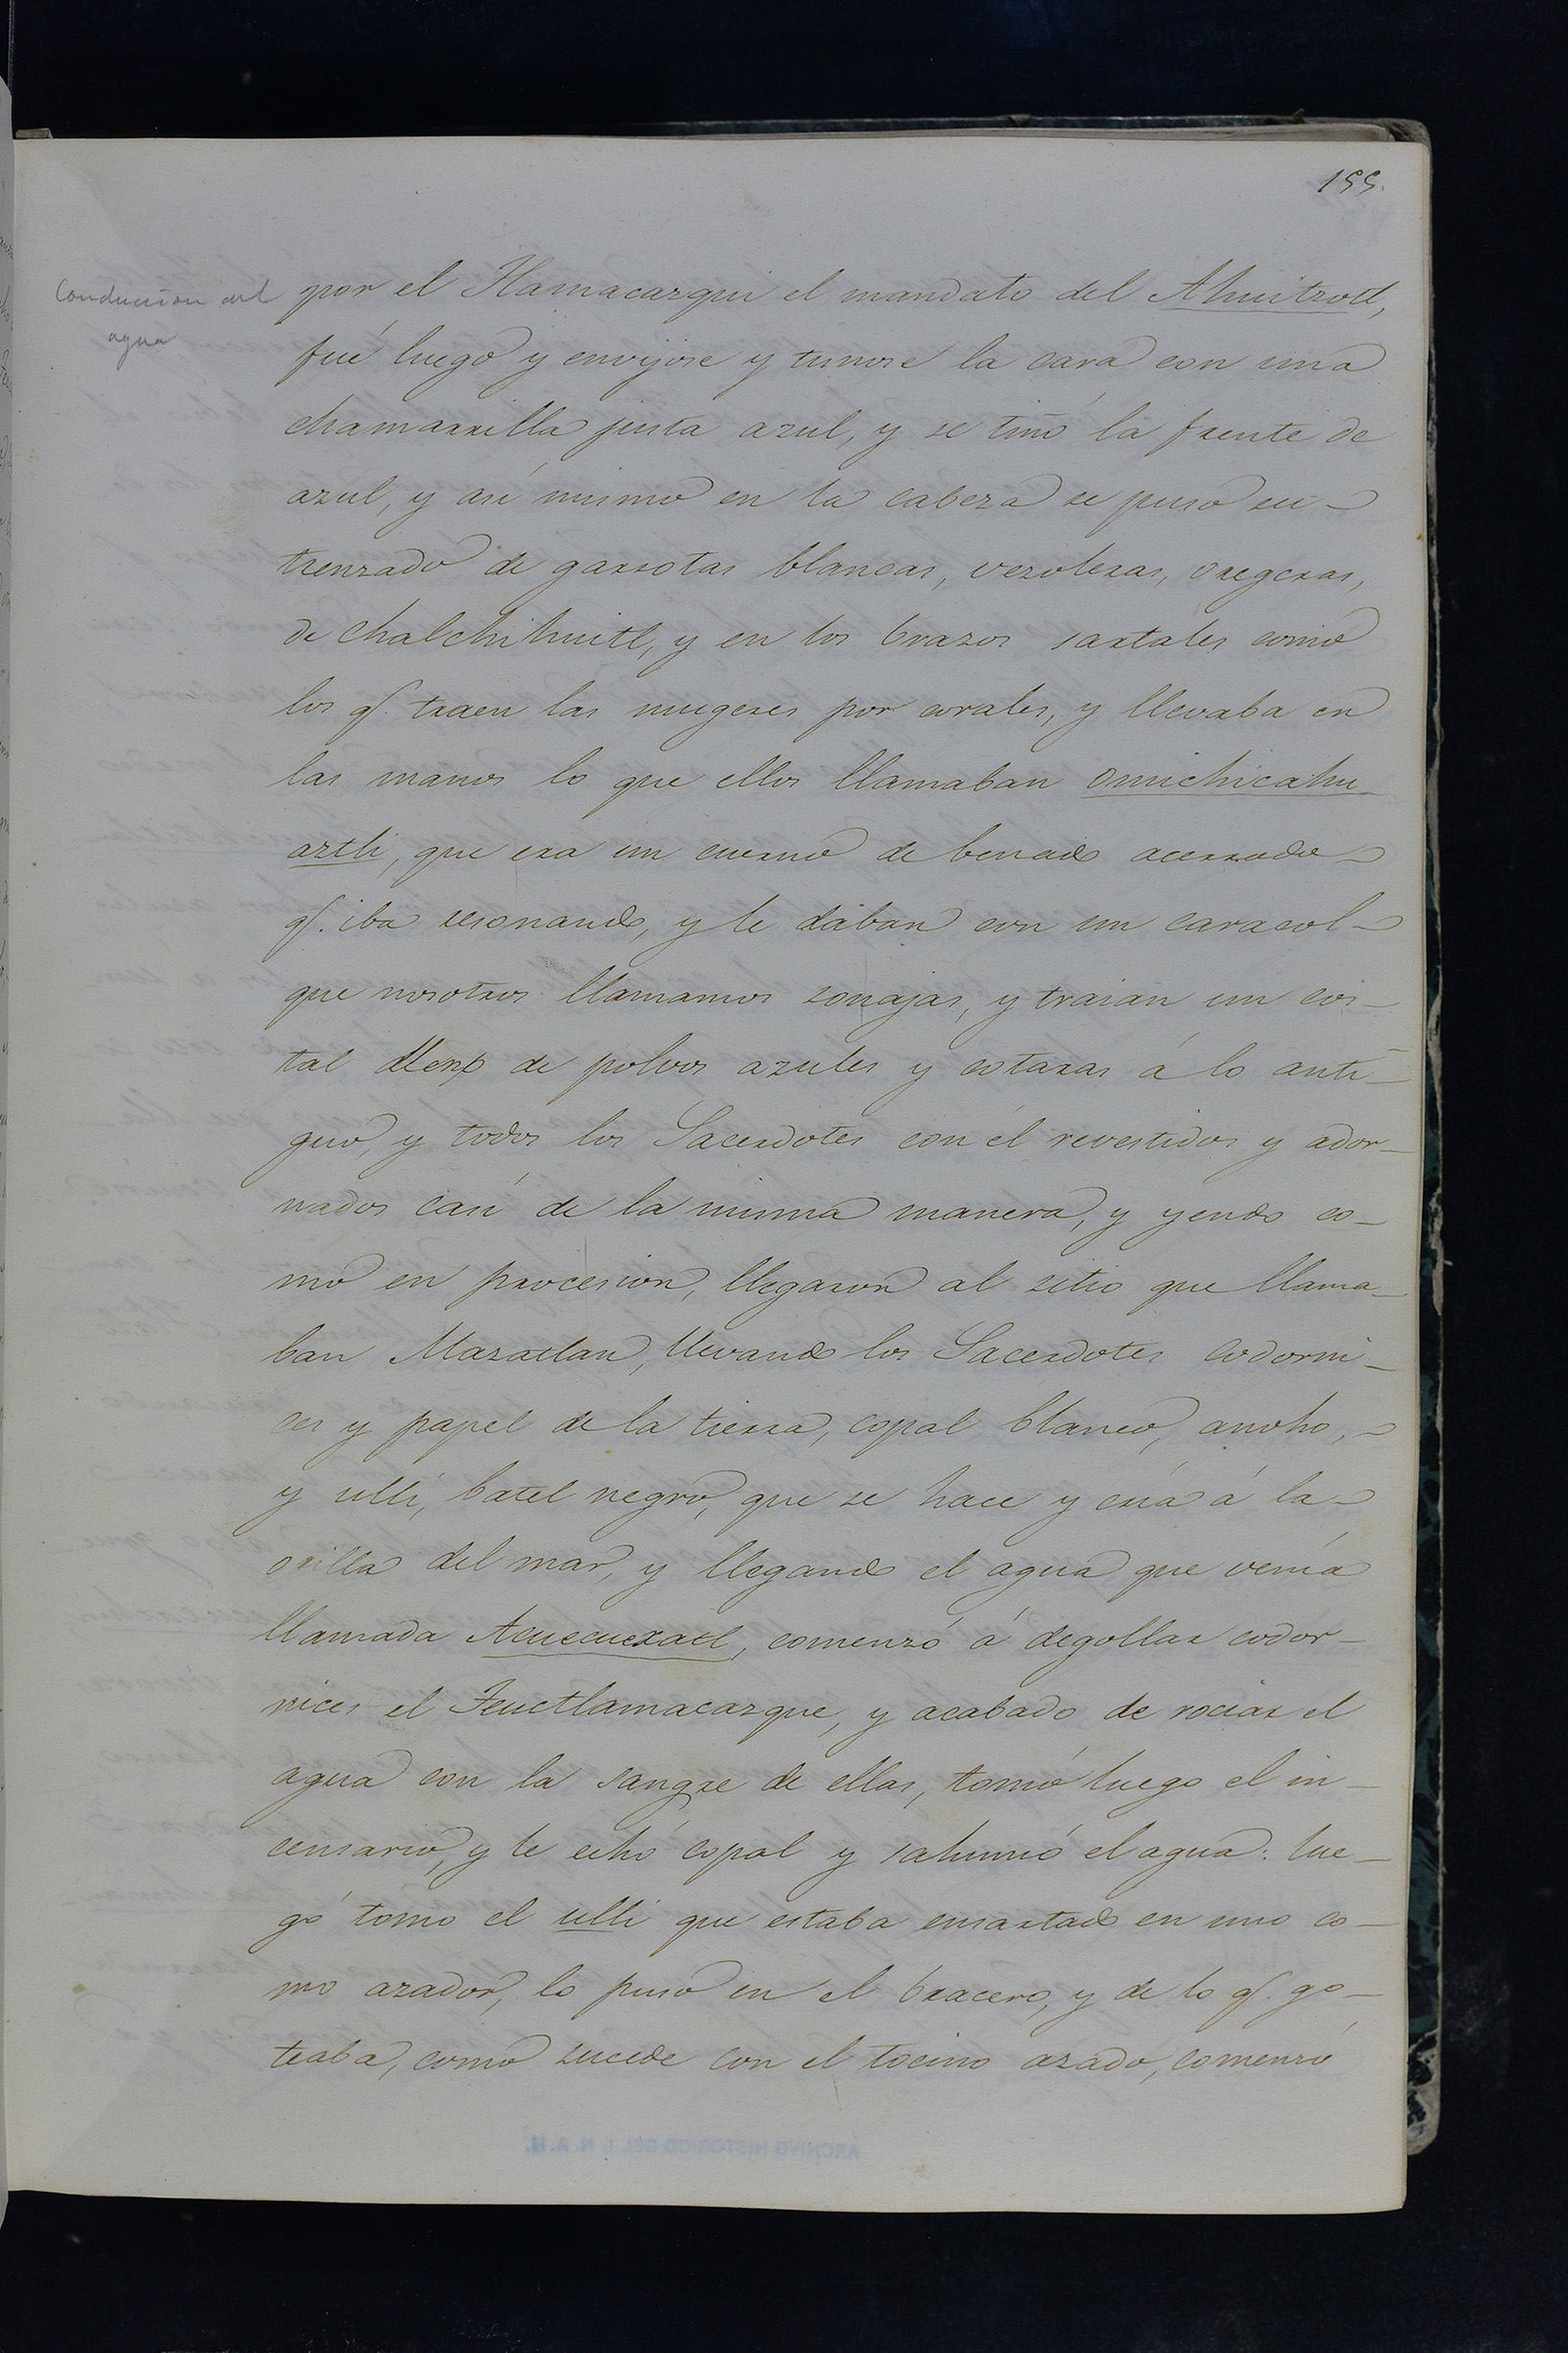 199.
Conduccion del
agua
por el Tlamacazqui el mandato del Ahuitzotl,
fué luego y envijose y tiznose la cara con una
chamarrilla justa azul, y se tiñó la frente de
azul, y asi mismo en la cabeza se puso su
trenzado de garzotas blancas, vezoleras, oregeras,
de chalchihuitl, y en los brazos sartales como
los q. traen las mugeres por corales, y llevaba en
las manos lo que ellos llamaban omichicahu-
aztli, que era un cuerno de benado acerrado
q. iba resonando, y le daban con un caracol
que nosotros llamamos sonajas, y traian un cos-
tal lleno de polvos azules y cotaras á lo anti-
guo, y todos los Sacerdotes con él revestidos y ador-
nados casi de la misma manera, y yendo co-
mo en procesion, llegaron al sitio que llama-
ban Mazatlan, llevando los Sacerdotes codorni-
ces y papel de la tierra, copal blanco, ancho,
y ulli, batel negro, que se hace y cria á la
orilla del mar, y llegando el agua que venia
llamada Acuecuexatl, comenzó á degollar codor-
nices el Teuctlamacazque, y acabado de rociar el
agua con la sangre de ellas, tomó luego el in-
censario, y le echó copal y sahumó el agua: lue-
go tomo el ulli que estaba ensartado en uno co-
mo azador, lo puso en el bracero, y de lo q. go-
teaba, como sucede con el tocino asado, comenzó
ARCHIVO HISTORICO DEL I. N. A. H.